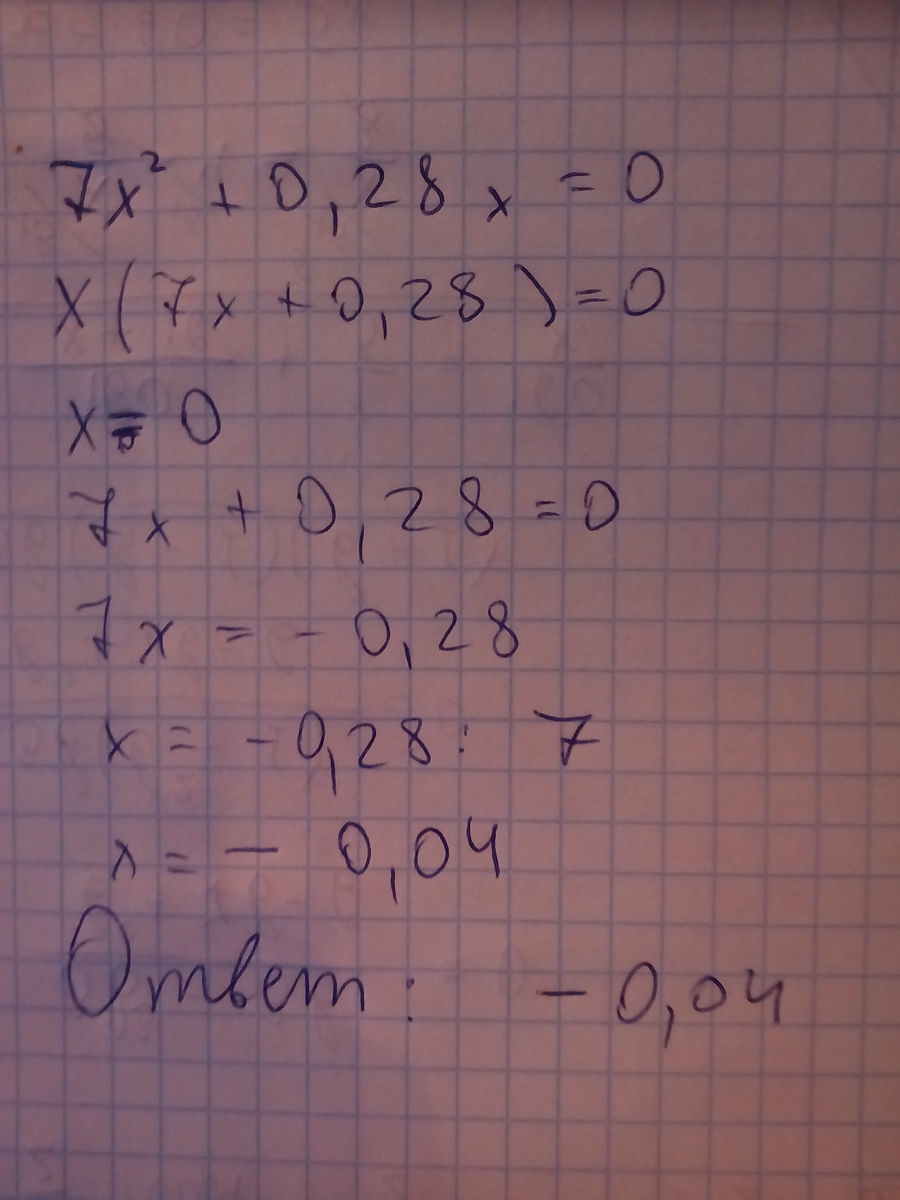 7x² + 0,28x = 0
x(7x + 0,28) = 0
x = 0
7x + 0,28 = 0
7x = - 0,28
x = - 0,28 : 7
x = - 0,04
Ответ: - 0,04